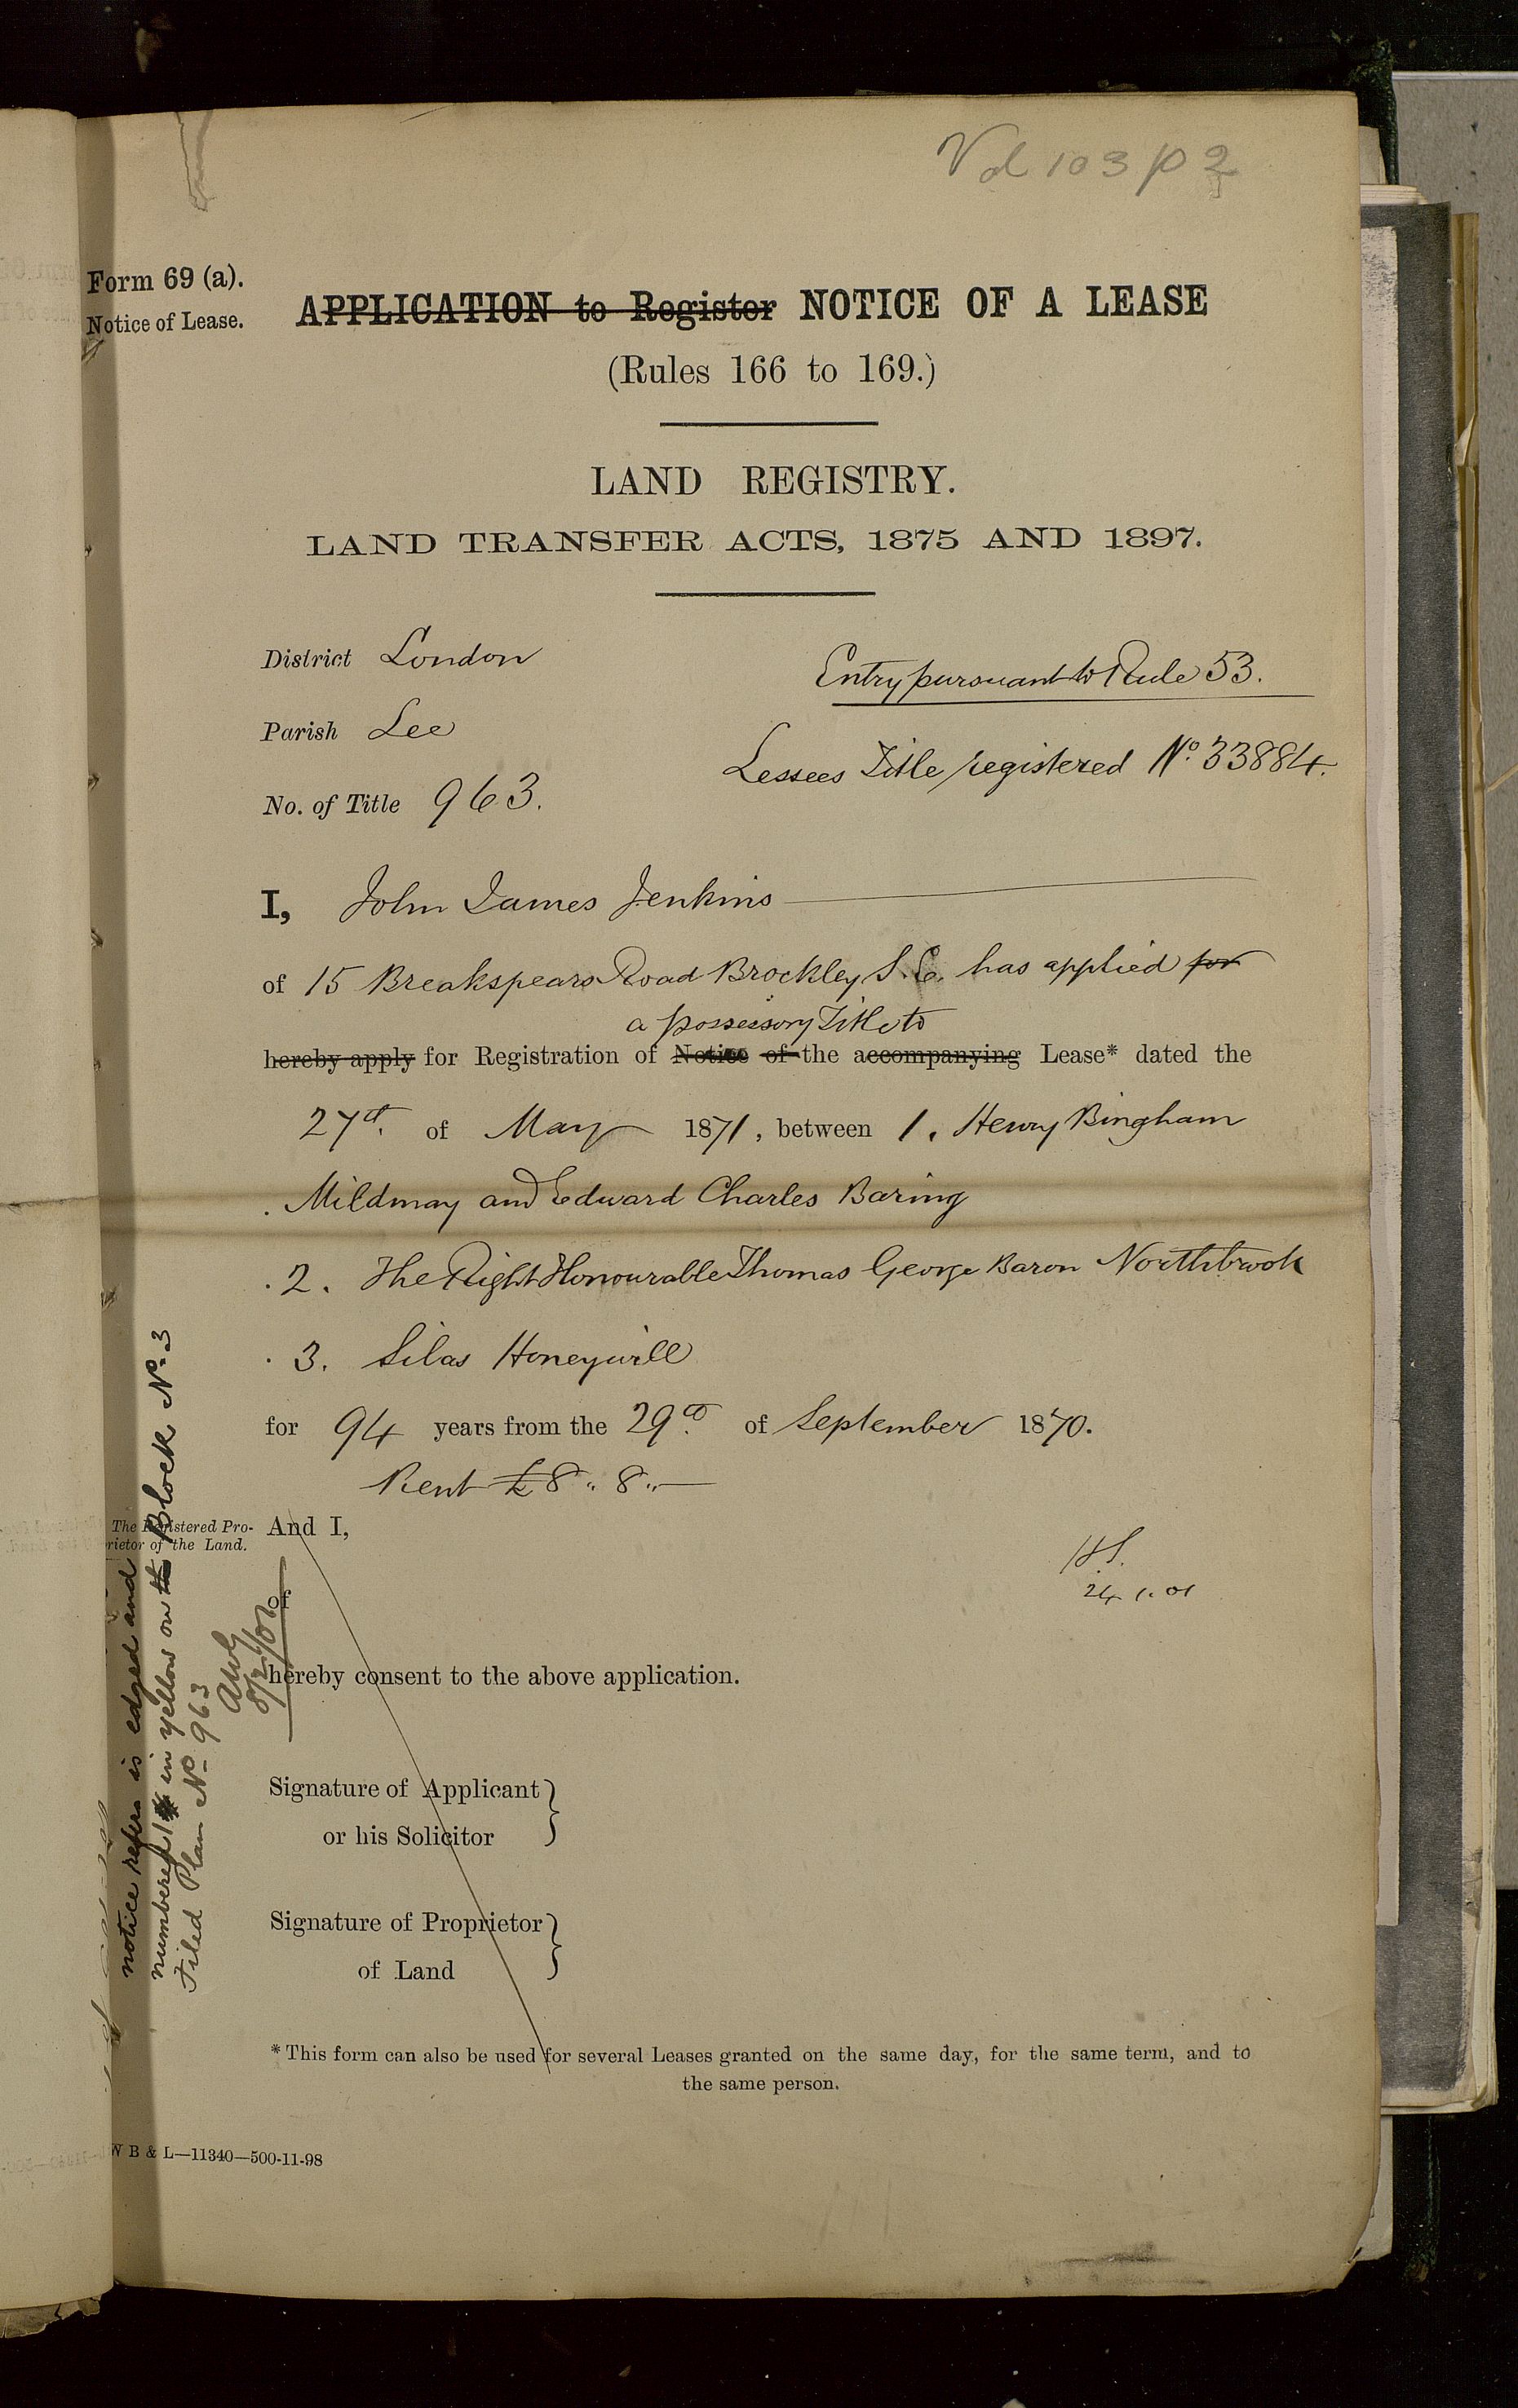 Vol 103 p 2
Form 69 (a).
Notice of Lease.
APPLICATION to Register NOTICE OF A LEASE
(Rules 166 to 169.)
LAND REGISTRY.
LAND TRANSFER ACTS, 1875 AND 1897.
District London
Entry pursuant to Rule 53.
Parish Lee
Lessees Title registered No. 33884.
No. of Title 963.
I, John James Jenkins
of 15 Breakspears Road Brockley S.E. has applied for
a possessory Title to
hereby apply for Registration of Notice of the accompanying Lease* dated the
27th. of May 1871, between 1. Henry Bingham
Mildmay and Edward Charles Baring
2. The Right Honourable Thomas George Baron Northbrook
3. Silas Honeywill
for 94 years from the 29th. of September 1870.
Rent £8 " 8 "
The Registered Pro-
rietor of the Land.
And I,
of
24.1.01
hereby consent to the above application.
notice refers is edged and
numbered 1 in yellow on the Block No. 3
Filed Plan No. 963
Signature of Applicant
or his Solicitor
Signature of Proprietor
of Land
* This form can also be used for several Leases granted on the same day, for the same term, and to
the same person.
W B & L—11340—500-11-98